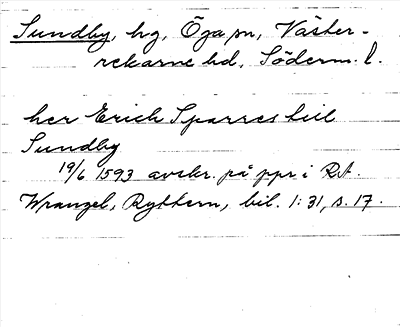 Sundby, hg, Öga sn, Väster-
rekarne hd, Söderm. l.
her Erich Sparres till
Sundby
19/6 1593 avskr. på ppr i RA.
Wrangel, Ryttern, bil. 1:31, s. 17.